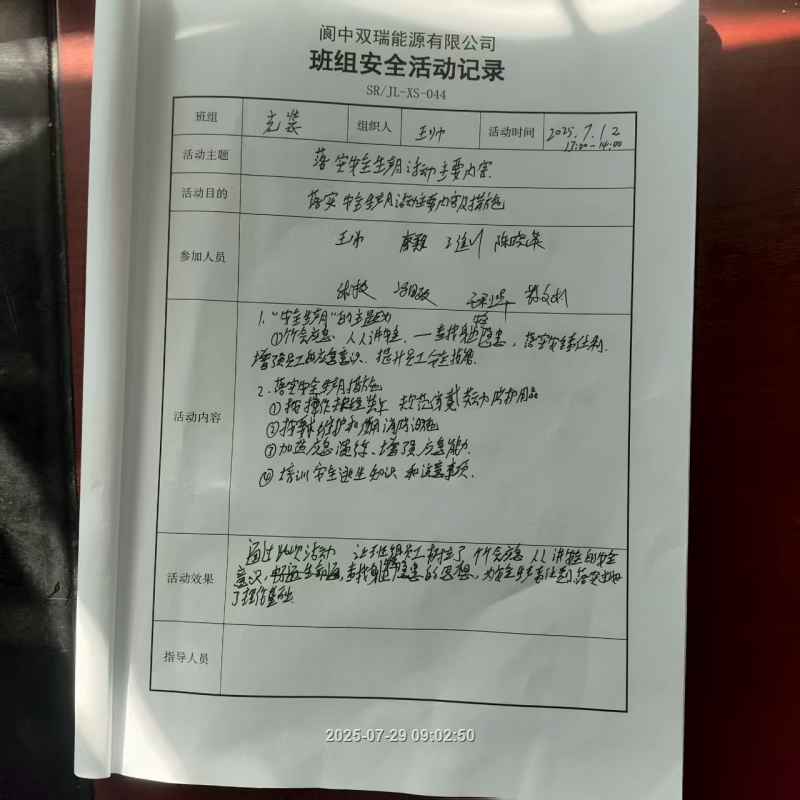 阆中双瑞能源有限公司
班组安全活动记录
SR/JL-XS-044
班组 充装 组织人 王帅 活动时间 2025.7.12
13:00-14:00
活动主题 落实安全生产月活动主要内容
活动目的 落实安全生产月活动主要内容及措施
参加人员
王帅 陈晓英
活动内容
1."安全生产月"的主题为
①人人讲安全、个个会应急——查找身边安全隐患,落实安全责任制,
增强员工的应急意识、提升员工安全技能
2.落实安全生产月措施
①按操作规程装车 规范穿戴劳动防护用品
②维护和使用消防设施
③加强应急演练、增强应急能力
④培训安全逃生知识和注意事项.
活动效果
通过此次活动 让班组员工树立了个个会应急 人人讲安全的安全
意识,查找身边安全隐患的思想,为安全生产责任制落实
了基础
指导人员
2025-07-29 09:02:50